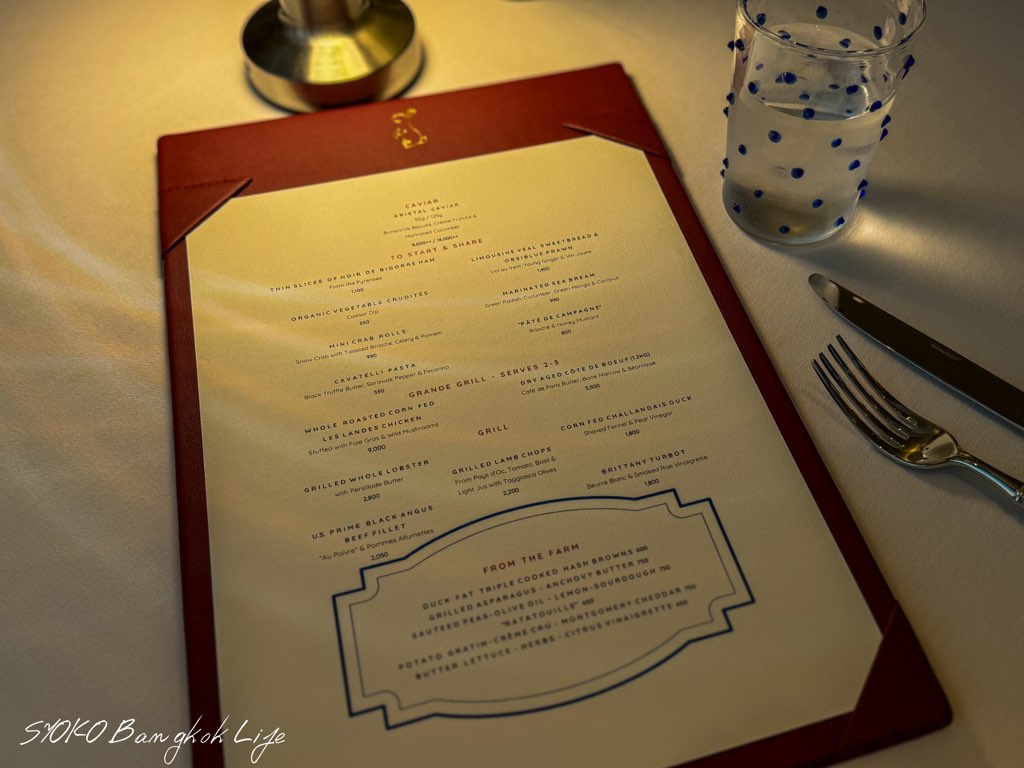 CAVIAR
KRISTAL CAVIAR
50g / 125g
Buttermilk Biscuits, Crème Fraîche &
Marinated Cucumber
6,000++ / 14,000++
TO START & SHARE
THIN SLICES OF NOIR DE BIGORRE HAM
From the Pyrenees
1,100
LIMOUSINE VEAL SWEETBREAD &
OBSIBLUE PRAWN
Vol au Vent, Young Ginger & Vin Jaune
1,400
ORGANIC VEGETABLE CRUDITÉS
Caesar Dip
550
MARINATED SEA BREAM
Green Radish, Cucumber, Green Mango & Coconut
990
MINI CRAB ROLLS
Snow Crab with Toasted Brioche, Celery & Pomelo
990
"PÂTÉ DE CAMPAGNE"
Brioche & Honey Mustard
800
CAVATELLI PASTA
Black Truffle Butter, Sarawak Pepper & Pecorino
550
GRANDE GRILL - SERVES 2-3
WHOLE ROASTED CORN FED
LES LANDES CHICKEN
Stuffed with Foie Gras & Wild Mushrooms
9,000
DRY AGED CÔTE DE BOEUF (1.2KG)
Café de Paris Butter, Bone Marrow & Béarnaise
5,500
GRILL
GRILLED WHOLE LOBSTER
with Persillade Butter
2,800
GRILLED LAMB CHOPS
From Pays d'Oc, Tomato, Basil &
Light Jus with Taggiasca Olives
2,200
CORN FED CHALLANDAIS DUCK
Shaved Fennel & Pear Vinegar
1,800
U.S. PRIME BLACK ANGUS
BEEF FILLET
"Au Poivre" & Pommes Allumettes
2,050
BRITTANY TURBOT
Beurre Blanc & Smoked Roe Vinaigrette
1,900
FROM THE FARM
DUCK FAT TRIPLE COOKED HASH BROWNS 600
GRILLED ASPARAGUS - ANCHOVY BUTTER 750
SAUTEED PEAS - OLIVE OIL - LEMON - SOURDOUGH 750
"RATATOUILLE" 450
POTATO GRATIN - CRÈME CRU - MONTGOMERY CHEDDAR 750
BUTTER LETTUCE - HERBS - CITRUS VINAIGRETTE 450
SYOKO Bangkok Life